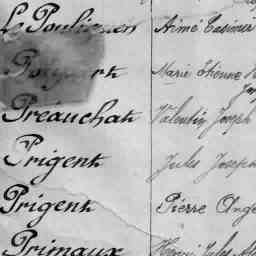 Le Pouliquen Aimé Casimir
Pouppart Marie Etienne
Préauchat Valentin Joseph
Prigent Jules Joseph
Prigent Pierre Ange
Primaux Henri Jules